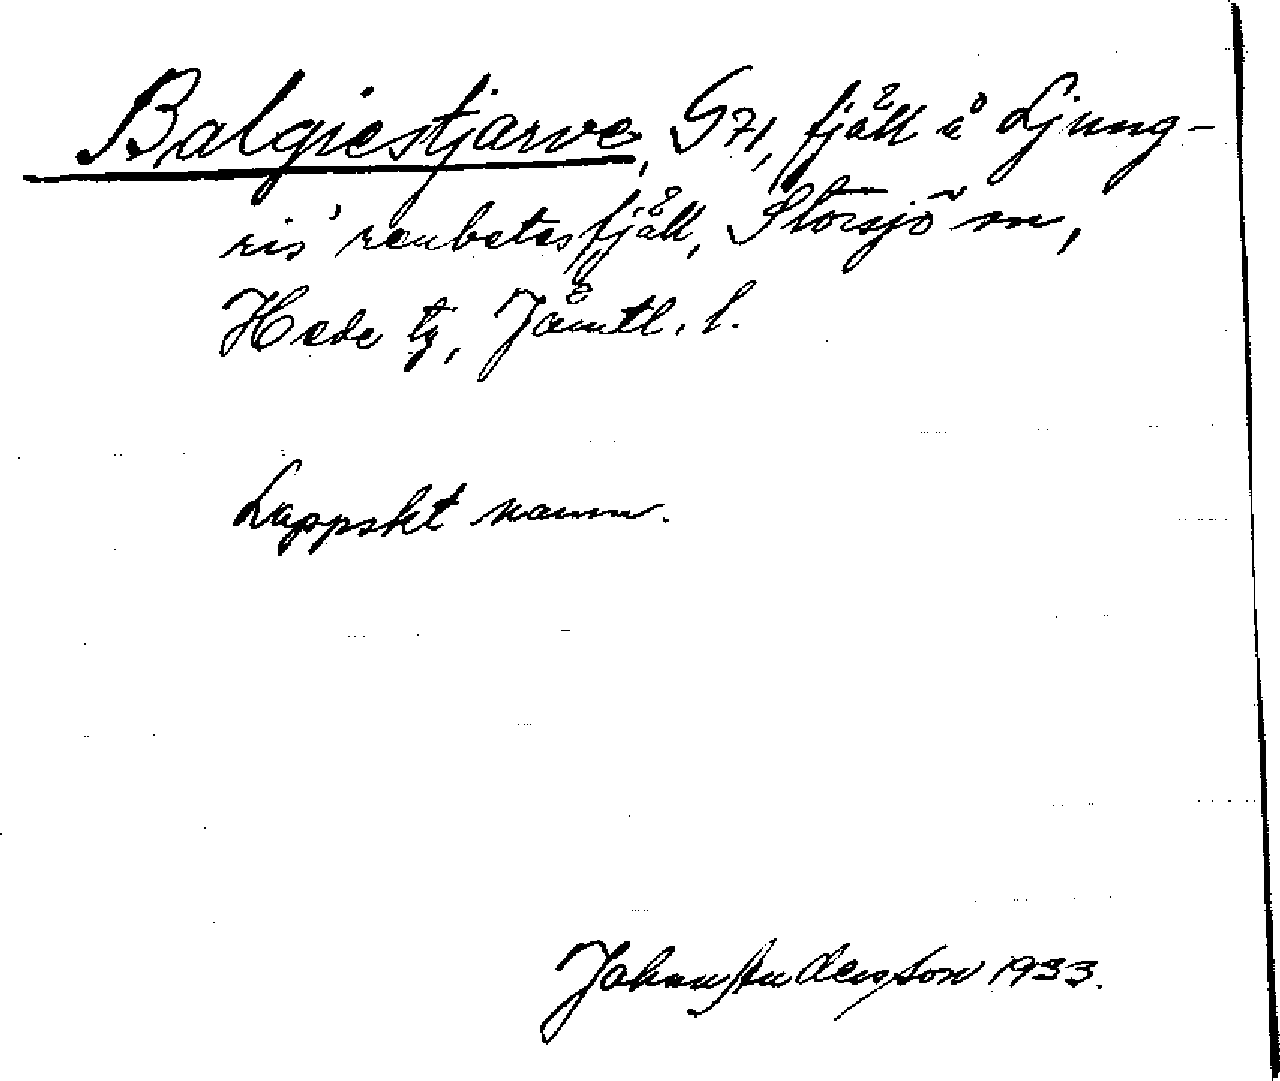 Balgiestjarve, S71, fjäll å Ljung-
ris' renbetesfjäll, Storsjö sn,
Hede tg, Jämtl. l.
Lappskt namn.
Johan Andersson 1933.